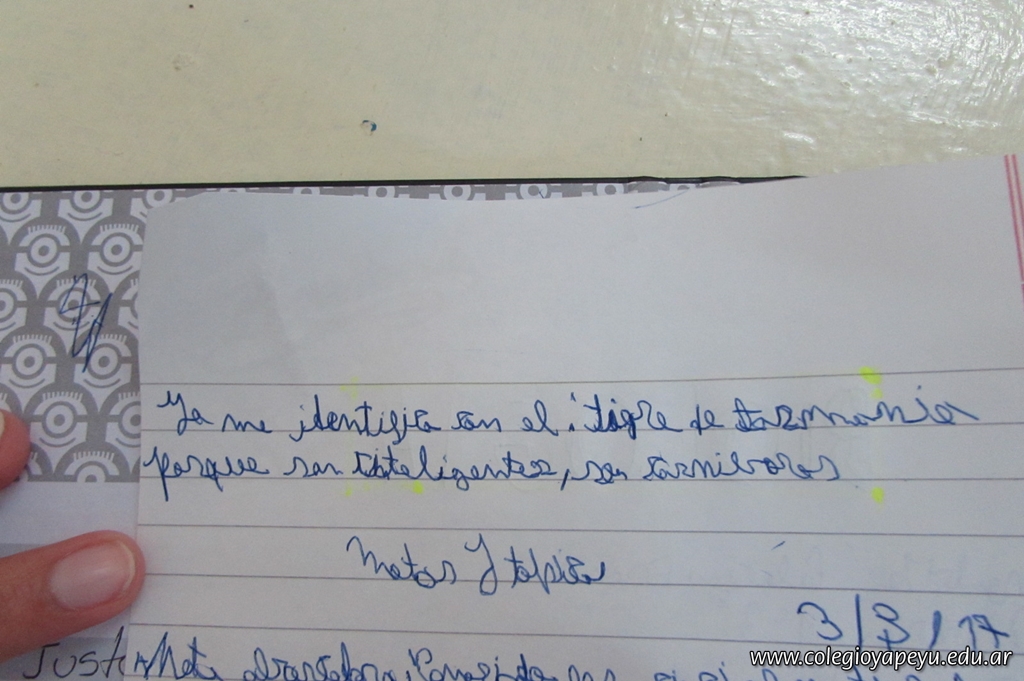 Yo me identifico con el tigre de tazmania
porque son inteligentes, son carniboros
Matas Y tapia
3/3/17
Just
www.colegioyapeyu.edu.ar